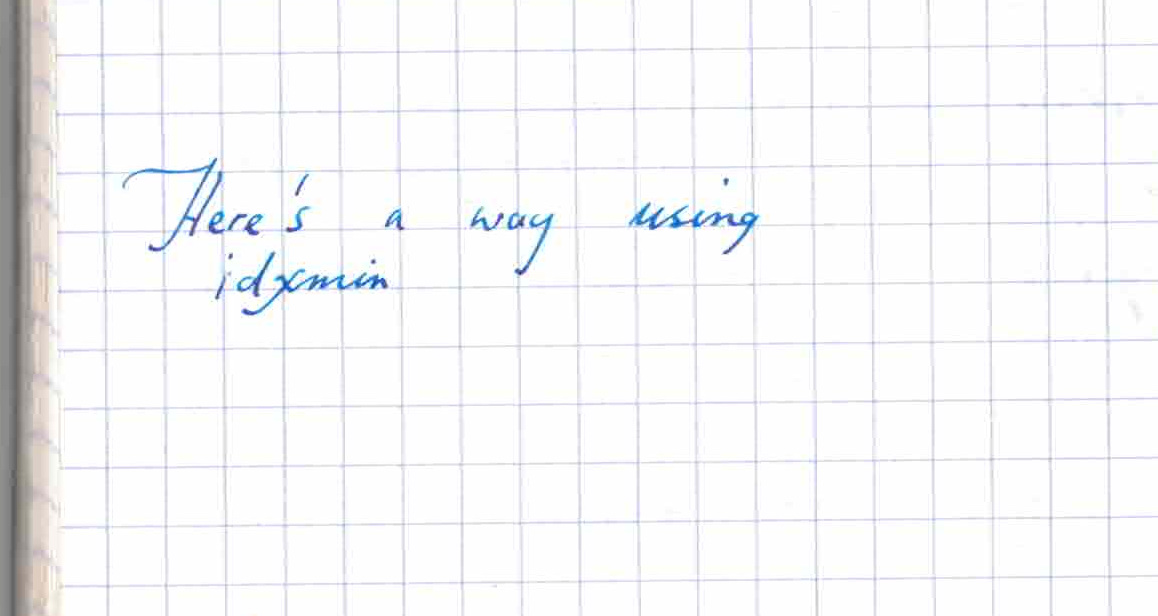 Here's a way using
idxmin